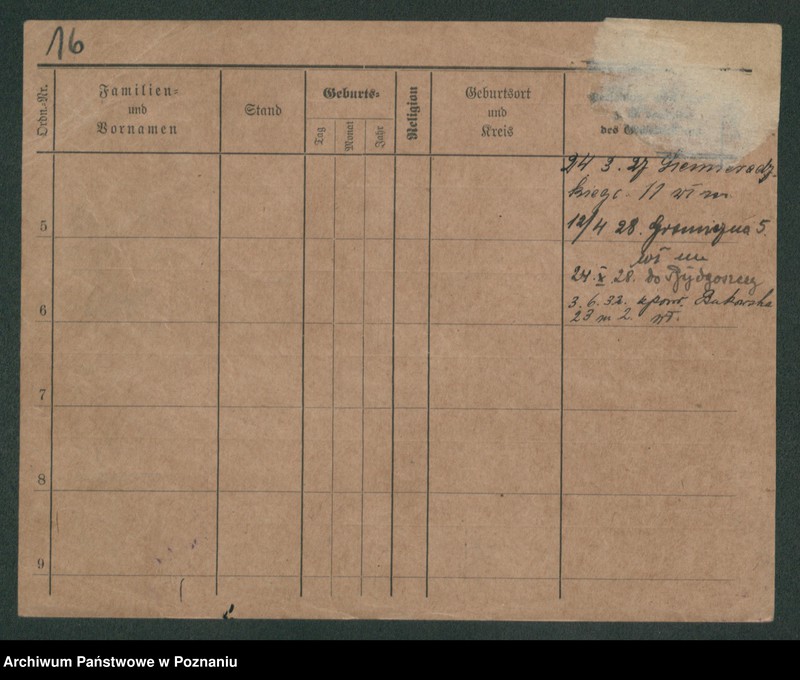 16
Ordn.-Nr.
Familien-
und
Vornamen
Stand
Geburts-
Tag
Monat
Jahr
Religion
Geburtsort
und
Kreis
des
24 3. 27 Siemieradz-
kiego 11
5
12/4 28.
24. X 28. do Bydgoszczy
6
3. 6. 32. Bukowska
23 m 2.
7
8
9
Archiwum Państwowe w Poznaniu